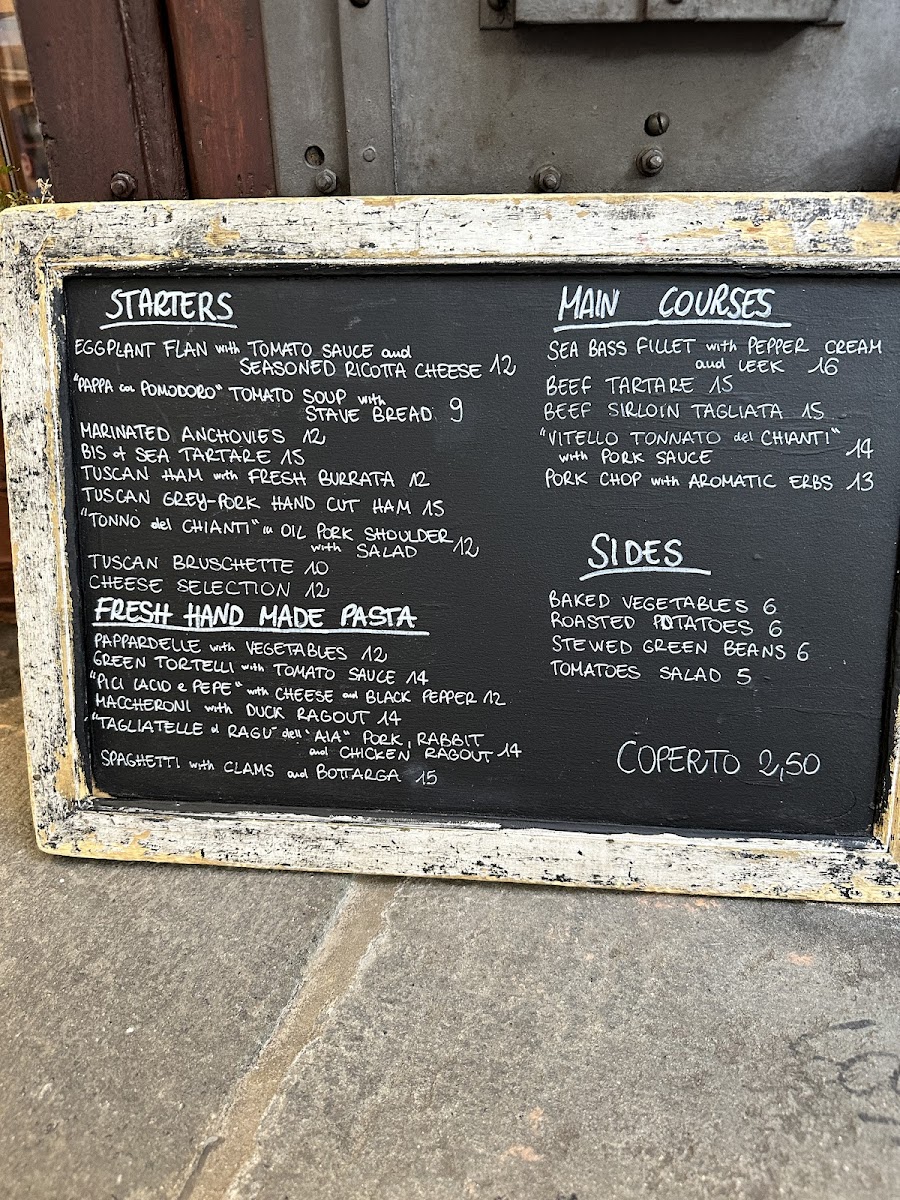 STARTERS
EGGPLANT FLAN with TOMATO SAUCE and
SEASONED RICOTTA CHEESE 12
"PAPPA col POMODORO" TOMATO SOUP with
STAVE BREAD 9
MARINATED ANCHOVIES 12
BIS of SEA TARTARE 15
TUSCAN HAM with FRESH BURRATA 12
TUSCAN GREY-PORK HAND CUT HAM 15
"TONNO del CHIANTI" in OIL PORK SHOULDER
with SALAD 12
TUSCAN BRUSCHETTE 10
CHEESE SELECTION 12
FRESH HAND MADE PASTA
PAPPARDELLE with VEGETABLES 12
GREEN TORTELLI with TOMATO SAUCE 14
"PICI CACIO e PEPE" with CHEESE and BLACK PEPPER 12
MACCHERONI with DUCK RAGOUT 14
"TAGLIATELLE al RAGU' dell'AIA" PORK, RABBIT
and CHICKEN RAGOUT 14
SPAGHETTI with CLAMS and BOTTARGA 15
MAIN COURSES
SEA BASS FILLET with PEPPER CREAM
and LEEK 16
BEEF TARTARE 15
BEEF SIRLOIN TAGLIATA 15
"VITELLO TONNATO del CHIANTI"
with PORK SAUCE 14
PORK CHOP with AROMATIC ERBS 13
SIDES
BAKED VEGETABLES 6
ROASTED POTATOES 6
STEWED GREEN BEANS 6
TOMATOES SALAD 5
COPERTO 2,50